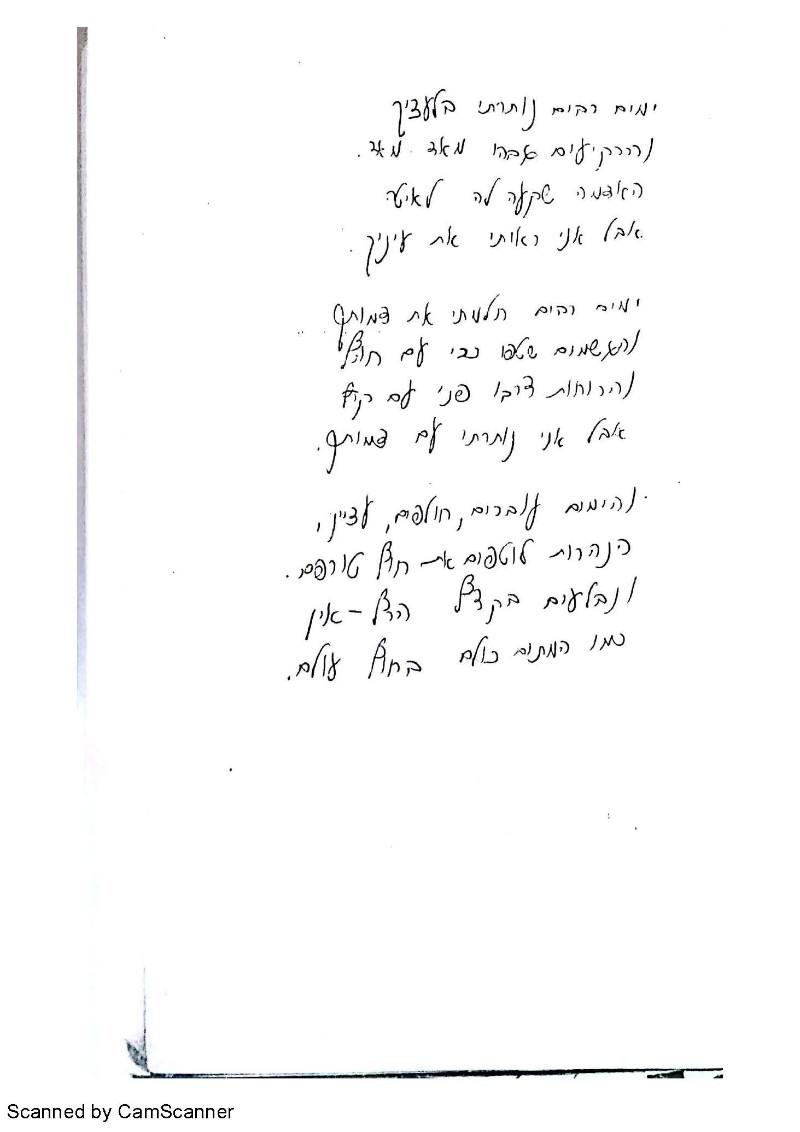 ימים רבים נותרתי בלעדיך
והרקיעים גבהו מאד מאד.
האדמה שקעה לה לאיטה
אבל אני ראיתי את עיניך.
ימים רבים חלמתי את דמותך
והגשמים שטפו נבי עם חוץ
והרוחות צרבו פני עם קיץ
אבל אני נותרתי עם דמותך.
והימים עוברים, חולפים, עדיין,
הנהרות לוטפים את חוץ טורפם.
ונבלעים בקצף הרף-אין
כמו המתים כולם בחוף עולם.
Scanned by CamScanner